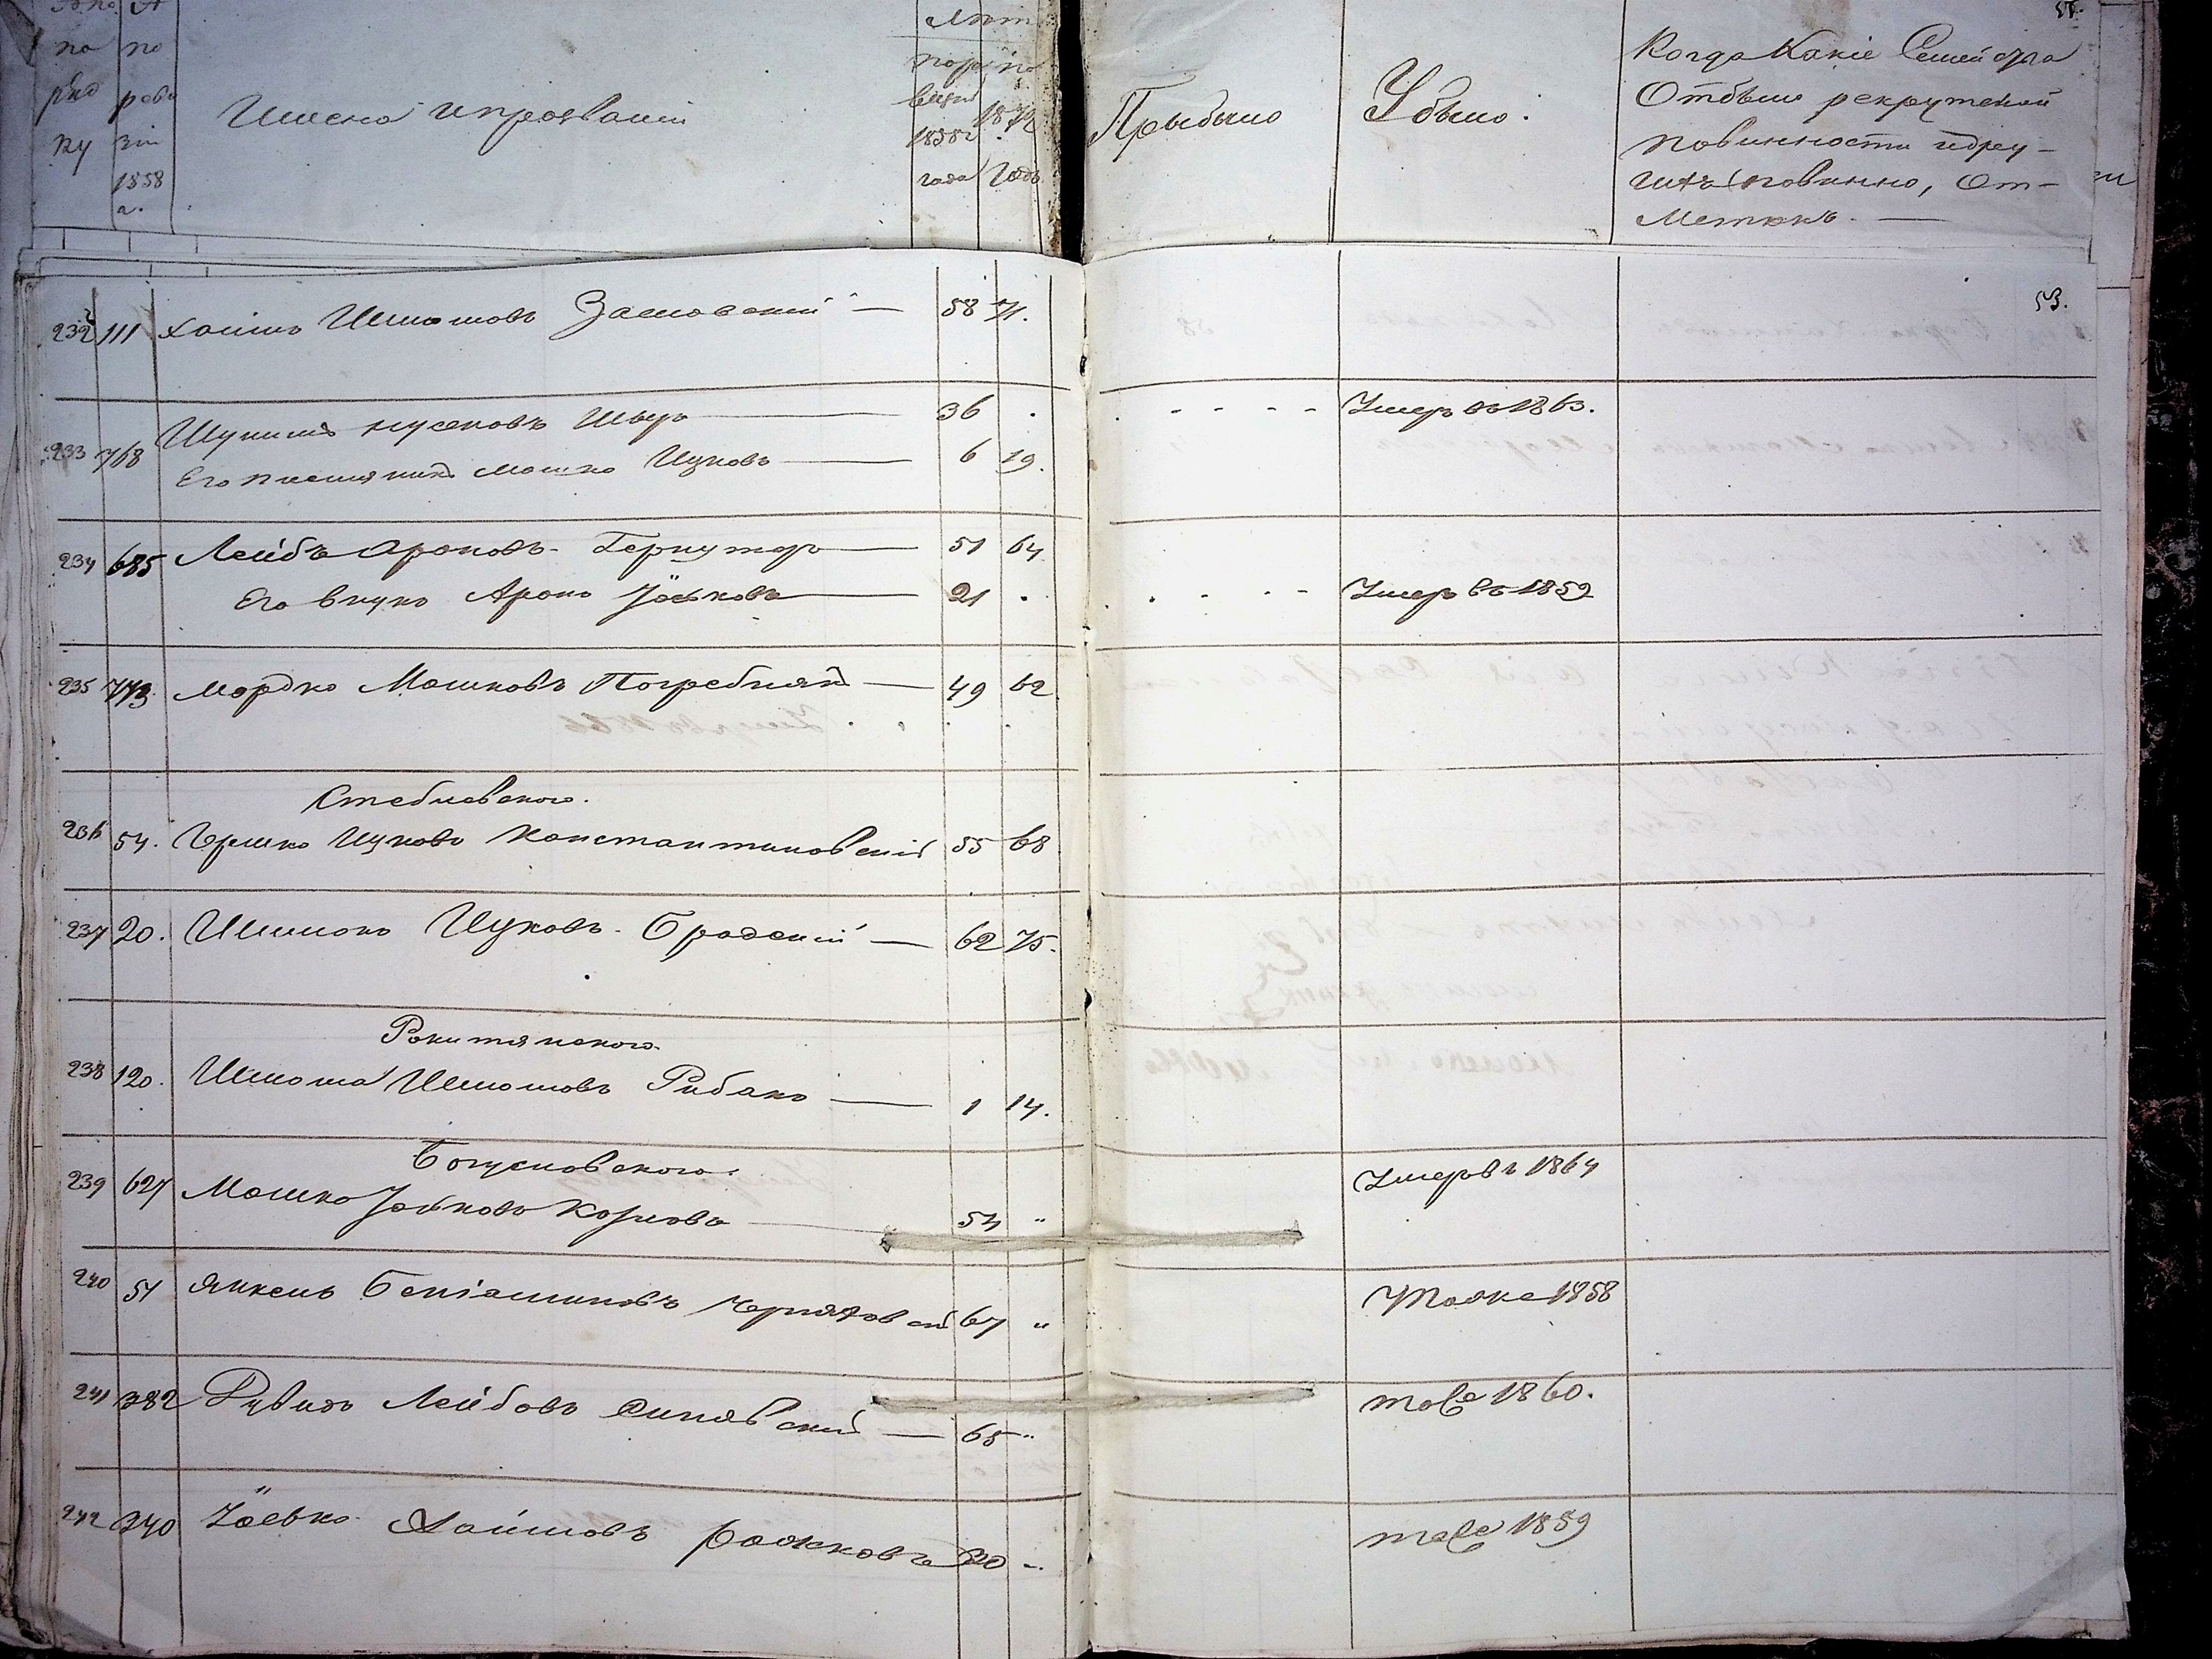 по по
ряд реви
ку зіи
1858
Имена и прозваніи
Лѣта
1858
года
1871
Годъ
Прыбыло
Убыло.
Когда Какіе Семейства
Отбыли рекрутской
повинности идру-
гихъ повинно, От-
Метокъ. —
53.
232 111 Хаимъ Шлиомовъ Заславскій — 58 71.
Шулимъ Нусеновъ Швец — 36 . Умеръ въ 1863.
233 768 Его племяникъ Мошко Ицковъ — 6 19.
234 685 Лейбъ Ароновъ — 51 64
Его внукъ Аронъ Іоськовъ — 21 . Умеръ въ 1859
235 773 Мордко Мошковъ Погребнякъ — 49 62
Стеблевского.
236 54. Гершко Ицковъ Константиновскій 55 68
237 20. Шлиома Ицковъ Бродскій — 62 75.
Рокитянского
238 120. Шлиома Шлиомовъ Рибакъ — 1 14.
Богуславского.
239 627 Мошко Іоськовъ Козловъ 54 " Умеръ въ 1864
240 51 Янкель Беніаминовъ Черняховскій 67 " Тоже 1858
241 382 Рувинъ Лейбовъ Синявскій — 65 " тоже 1860.
242 340 Іосько Хаимовъ 20 - тоже 1859